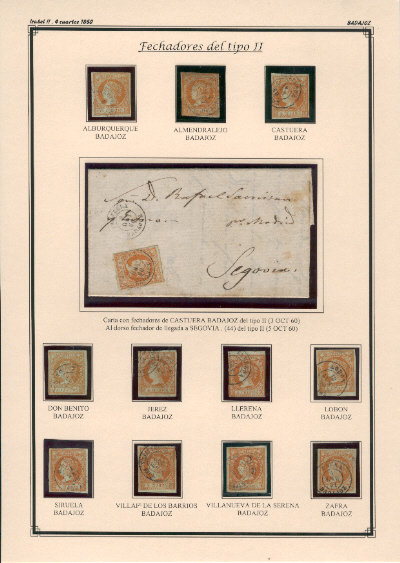 Isabel II . 4 cuartos 1860
BADAJOZ
Fechadores del tipo II
ALBURQUERQUE
BADAJOZ
ALMENDRALEJO
BADAJOZ
CASTUERA
BADAJOZ
D. Rafael
Segovia.
Carta con fechadores de CASTUERA BADAJOZ del tipo II (3 OCT 60)
Al dorso fechador de llegada a SEGOVIA . (44) del tipo II (5 OCT 60)
DON BENITO
BADAJOZ
JEREZ
BADAJOZ
LLERENA
BADAJOZ
LOBON
BADAJOZ
SIRUELA
BADAJOZ
VILLAFª DE LOS BARRIOS
BADAJOZ
VILLANUEVA DE LA SERENA
BADAJOZ
ZAFRA
BADAJOZ